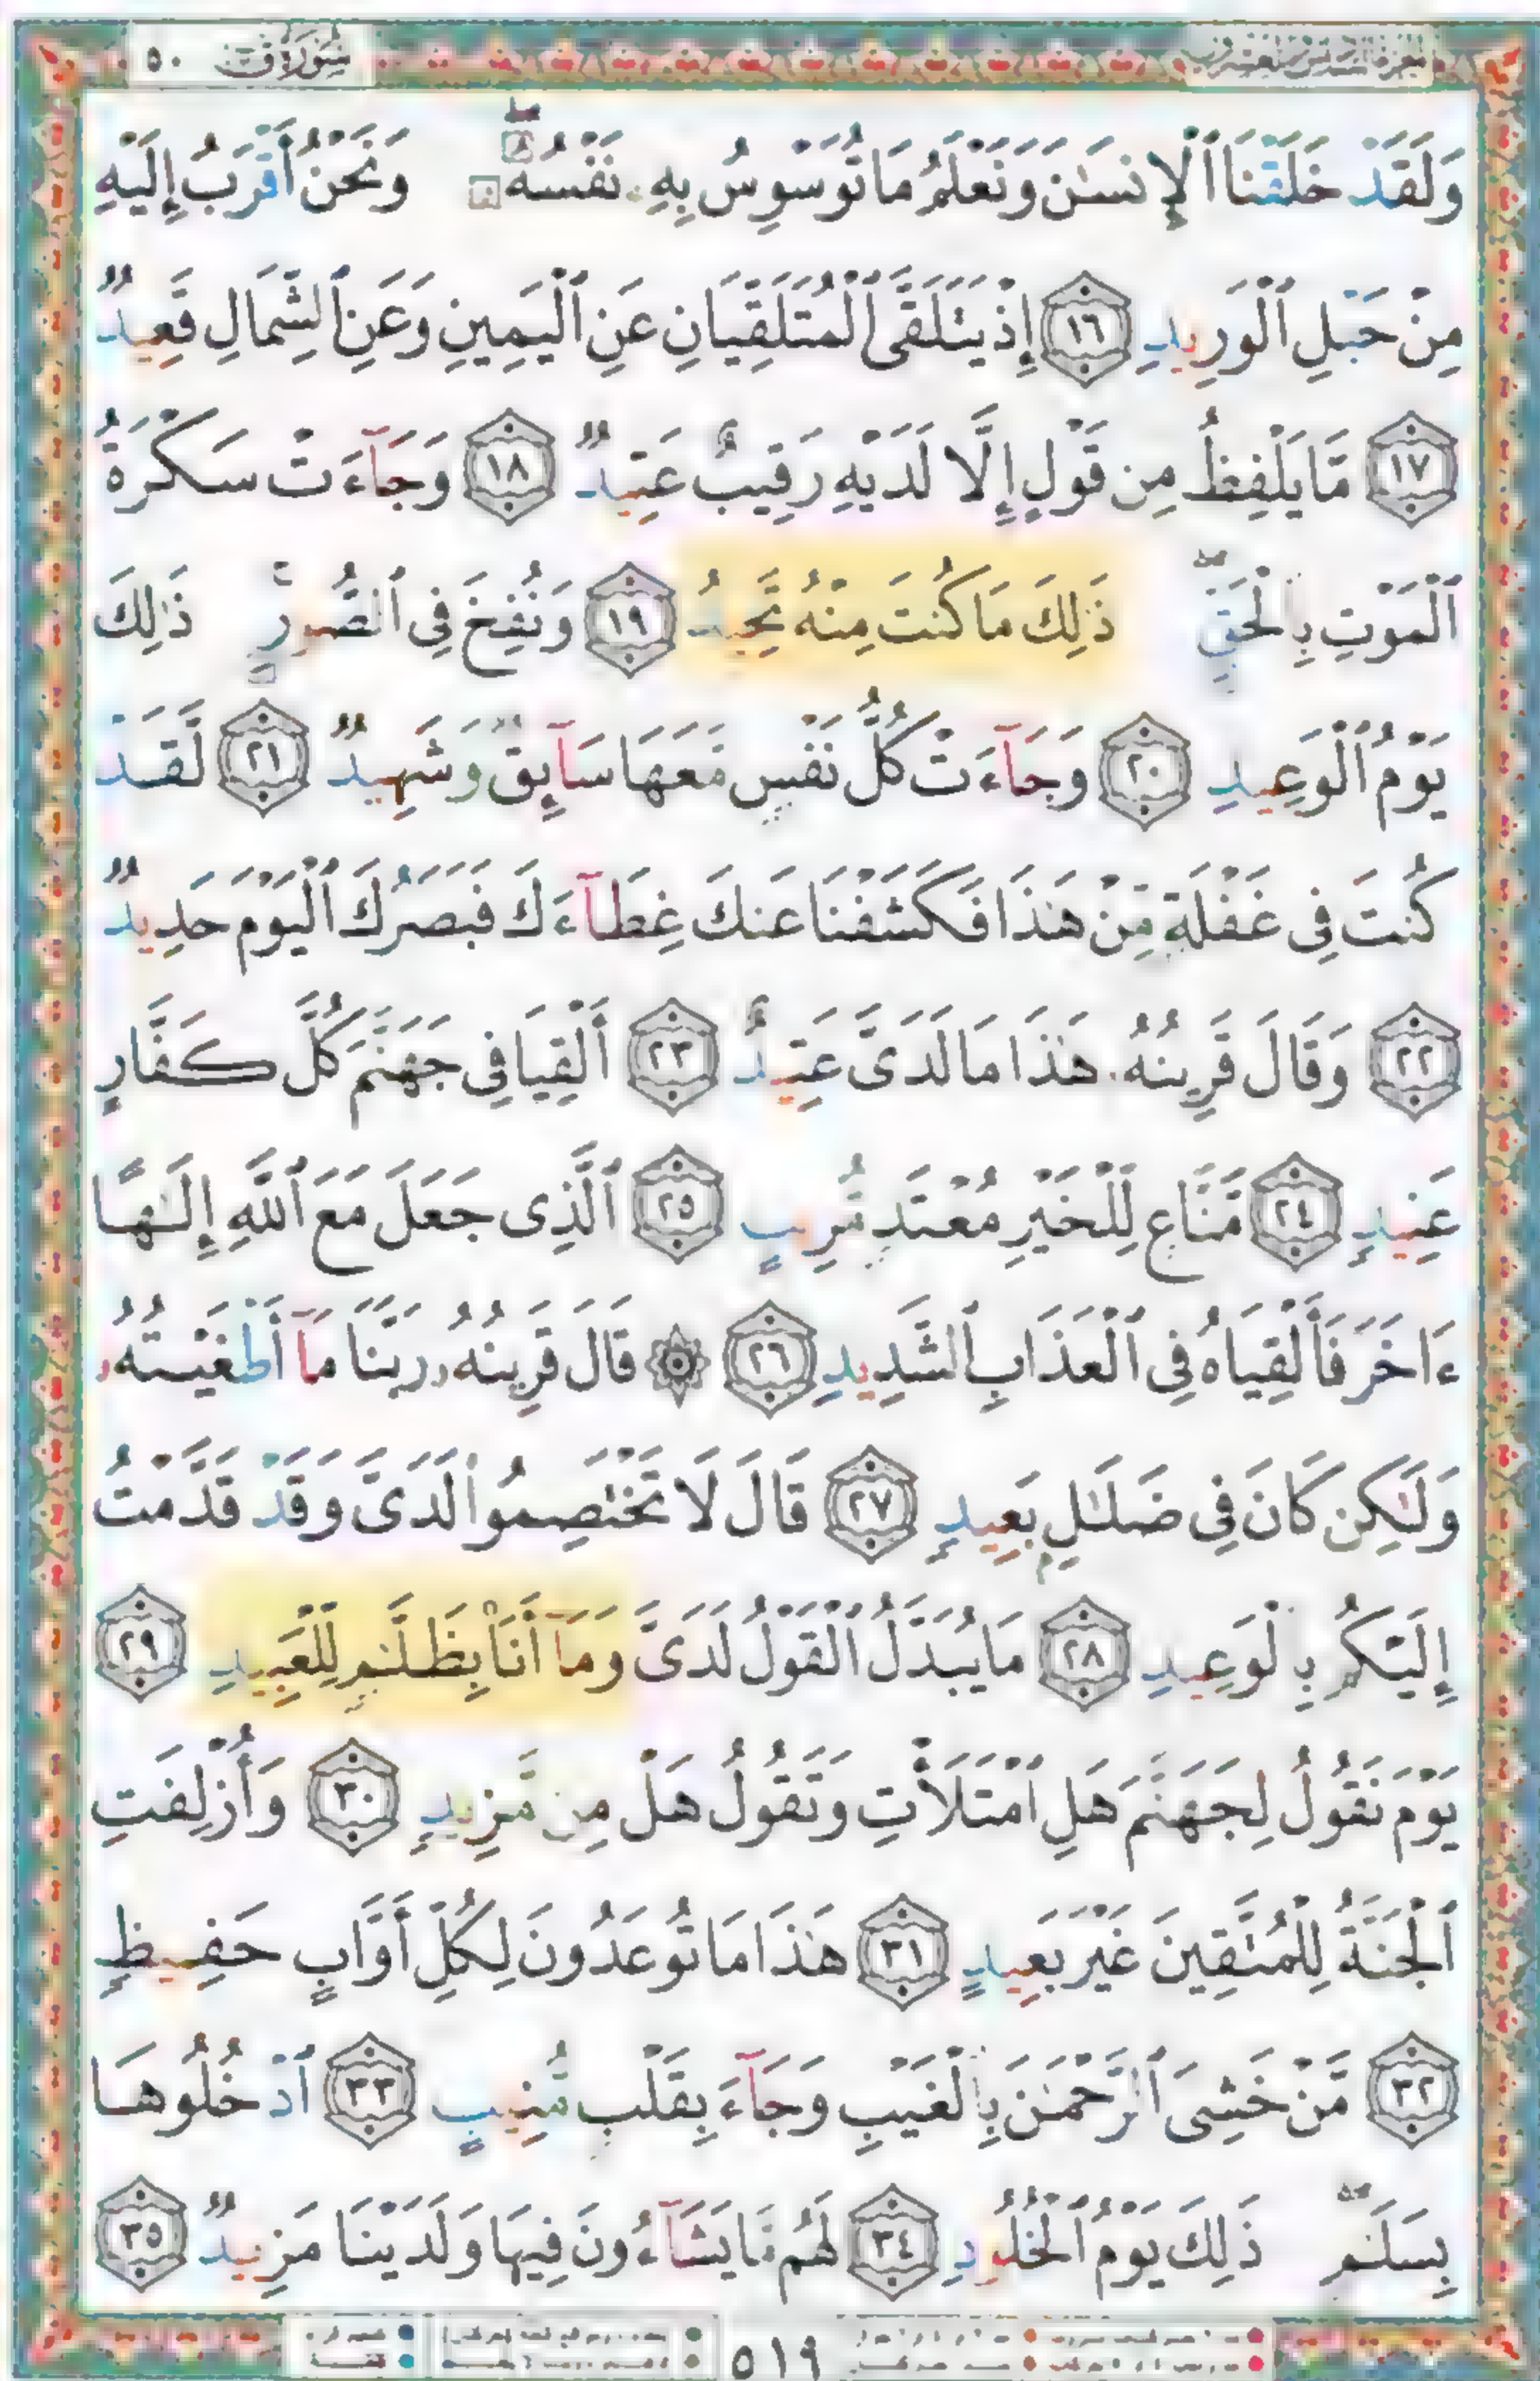 سُورَةُ ق ٥٠
وَلَقَدْ خَلَقْنَا ٱلْإِنسَٰنَ وَنَعْلَمُ مَا تُوَسْوِسُ بِهِۦ نَفْسُهُۥ ۖ وَنَحْنُ أَقْرَبُ إِلَيْهِ
مِنْ حَبْلِ ٱلْوَرِيدِ ١٦ إِذْ يَتَلَقَّى ٱلْمُتَلَقِّيَانِ عَنِ ٱلْيَمِينِ وَعَنِ ٱلشِّمَالِ قَعِيدٌ
١٧ مَّا يَلْفِظُ مِن قَوْلٍ إِلَّا لَدَيْهِ رَقِيبٌ عَتِيدٌ ١٨ وَجَآءَتْ سَكْرَةُ
ٱلْمَوْتِ بِٱلْحَقِّ ۖ ذَٰلِكَ مَا كُنتَ مِنْهُ تَحِيدُ ١٩ وَنُفِخَ فِى ٱلصُّورِ ۚ ذَٰلِكَ
يَوْمُ ٱلْوَعِيدِ ٢٠ وَجَآءَتْ كُلُّ نَفْسٍ مَّعَهَا سَآئِقٌ وَشَهِيدٌ ٢١ لَّقَدْ
كُنتَ فِى غَفْلَةٍ مِّنْ هَٰذَا فَكَشَفْنَا عَنكَ غِطَآءَكَ فَبَصَرُكَ ٱلْيَوْمَ حَدِيدٌ
٢٢ وَقَالَ قَرِينُهُۥ هَٰذَا مَا لَدَىَّ عَتِيدٌ ٢٣ أَلْقِيَا فِى جَهَنَّمَ كُلَّ كَفَّارٍ
عَنِيدٍ ٢٤ مَّنَّاعٍ لِّلْخَيْرِ مُعْتَدٍ مُّرِيبٍ ٢٥ ٱلَّذِى جَعَلَ مَعَ ٱللَّهِ إِلَٰهًا
ءَاخَرَ فَأَلْقِيَاهُ فِى ٱلْعَذَابِ ٱلشَّدِيدِ ٢٦ ۞ قَالَ قَرِينُهُۥ رَبَّنَا مَآ أَطْغَيْتُهُۥ
وَلَٰكِن كَانَ فِى ضَلَٰلٍۭ بَعِيدٍ ٢٧ قَالَ لَا تَخْتَصِمُوا۟ لَدَىَّ وَقَدْ قَدَّمْتُ
إِلَيْكُم بِٱلْوَعِيدِ ٢٨ مَا يُبَدَّلُ ٱلْقَوْلُ لَدَىَّ وَمَآ أَنَا۠ بِظَلَّٰمٍ لِّلْعَبِيدِ ٢٩
يَوْمَ نَقُولُ لِجَهَنَّمَ هَلِ ٱمْتَلَأْتِ وَتَقُولُ هَلْ مِن مَّزِيدٍ ٣٠ وَأُزْلِفَتِ
ٱلْجَنَّةُ لِلْمُتَّقِينَ غَيْرَ بَعِيدٍ ٣١ هَٰذَا مَا تُوعَدُونَ لِكُلِّ أَوَّابٍ حَفِيظٍ
٣٢ مَّنْ خَشِىَ ٱلرَّحْمَٰنَ بِٱلْغَيْبِ وَجَآءَ بِقَلْبٍ مُّنِيبٍ ٣٣ ٱدْخُلُوهَا
بِسَلَٰمٍ ۖ ذَٰلِكَ يَوْمُ ٱلْخُلُودِ ٣٤ لَهُم مَّا يَشَآءُونَ فِيهَا وَلَدَيْنَا مَزِيدٌ ٣٥
٥١٩